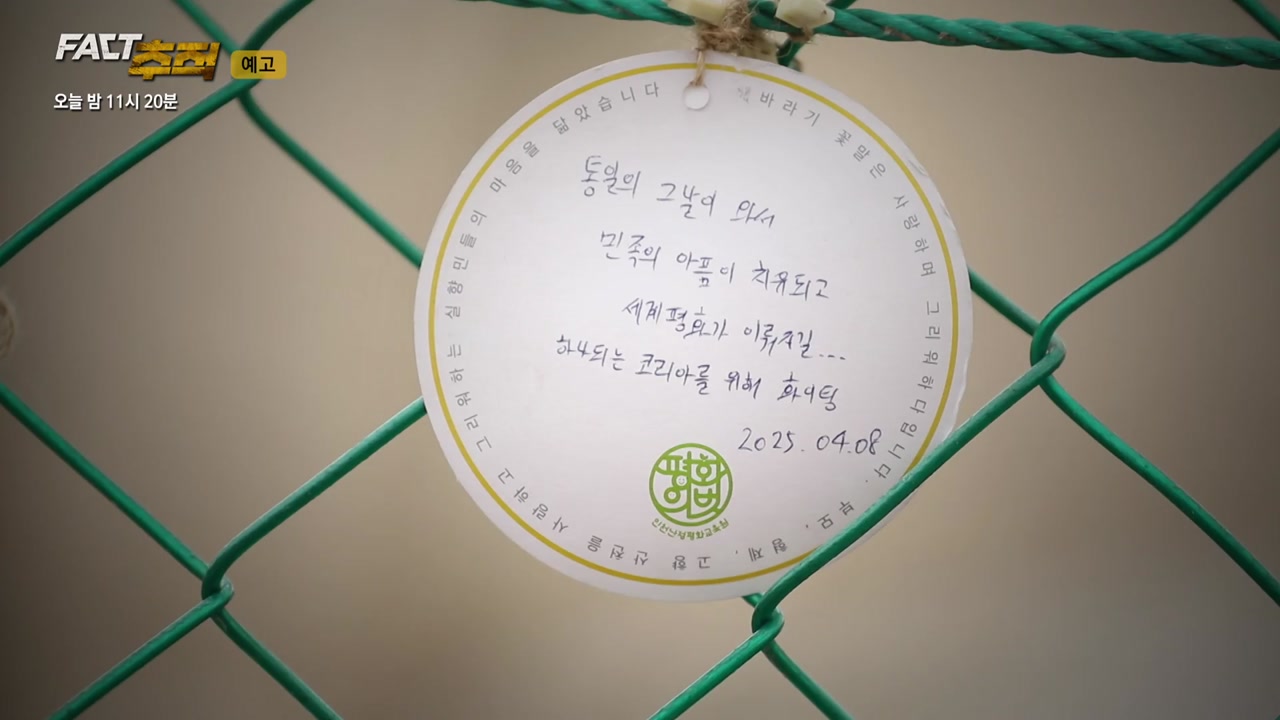 FACT추적 예고
오늘 밤 11시 20분
바라기 꽃말은 사랑하며 그리워하다입니다. 부모, 형제, 고향 산천을 사랑하고 그리워하는 실향민들의 마음을 닮았습니다
통일의 그날이 와서
민족의 아픔이 치유되고
세계평화가 이뤄지길...
하나되는 코리아를 위해 화이팅
2025. 04.08
평화
이번